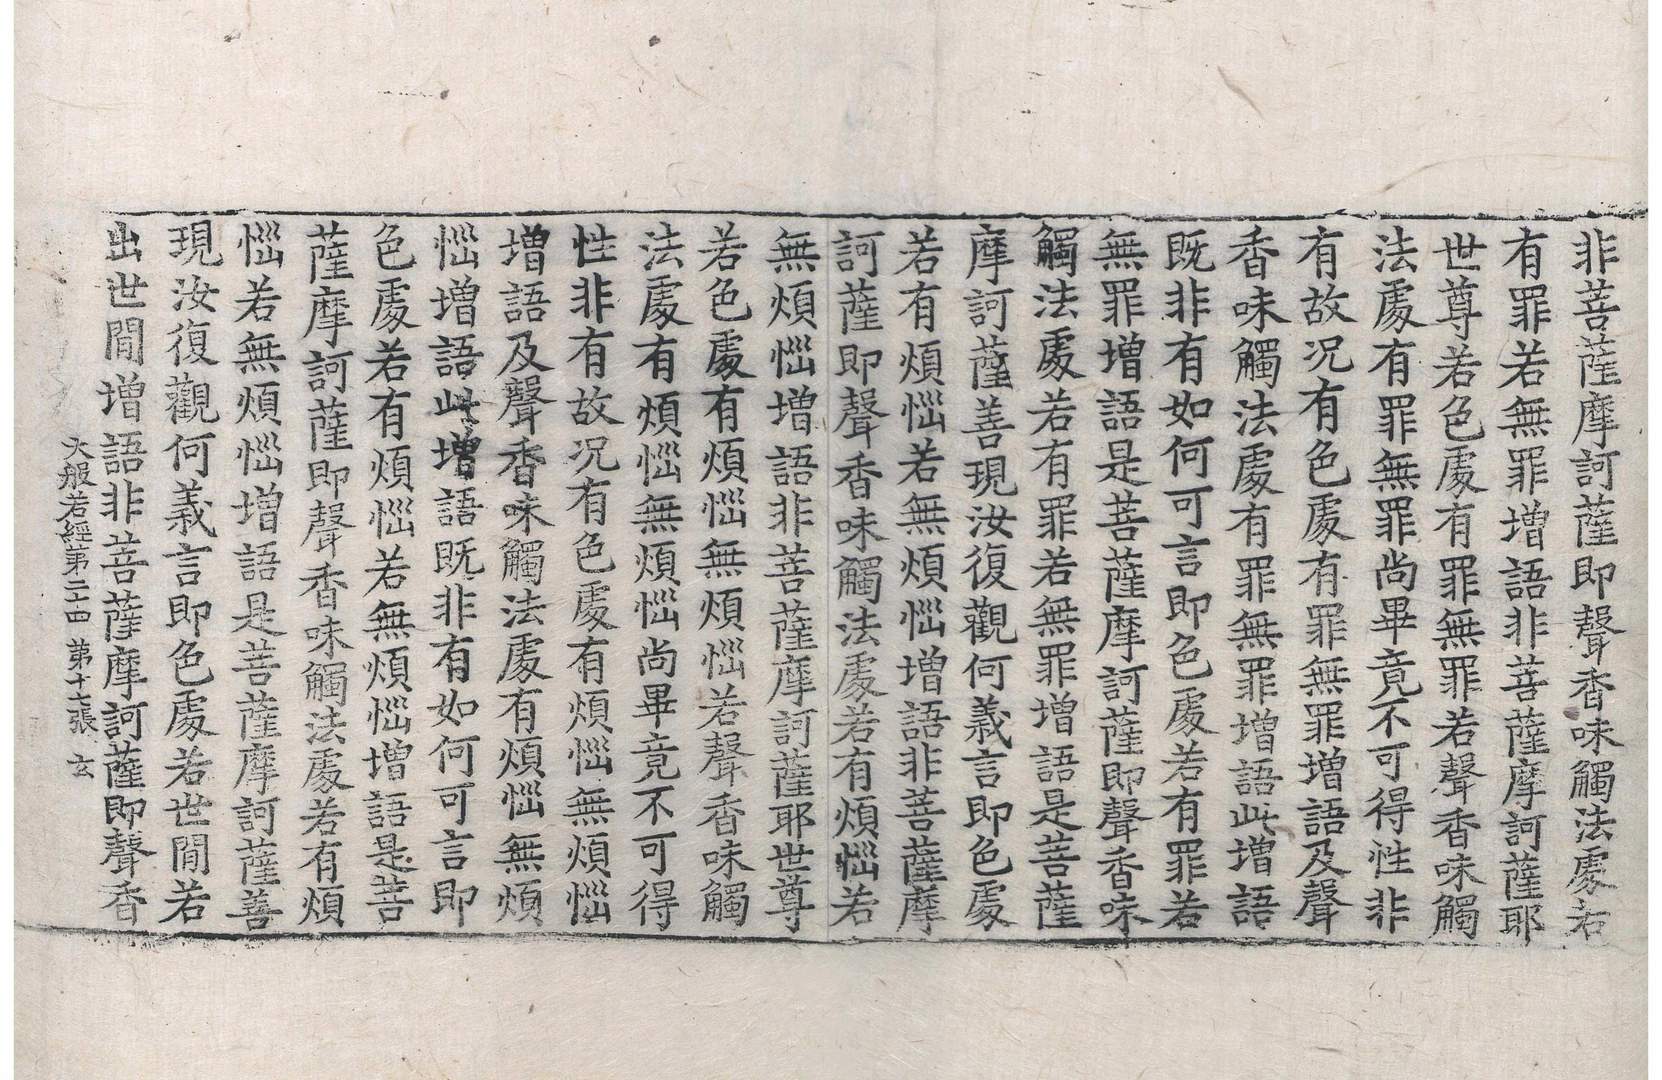 非菩薩摩訶薩即聲香味觸法處若
有罪若無罪增語非菩薩摩訶薩耶
世尊若色處有罪無罪若聲香味觸
法處有罪無罪尚畢竟不可得性非
有故况有色處有罪無罪增語及聲
香味觸法處有罪無罪增語此增語
既非有如何可言即色處若有罪若
無罪增語是菩薩摩訶薩即聲香味
觸法處若有罪若無罪增語是菩薩
摩訶薩善現汝復觀何義言即色處
若有煩惱若無煩惱增語非菩薩摩
訶薩即聲香味觸法處若有煩惱若
無煩惱增語非菩薩摩訶薩耶世尊
若色處有煩惱無煩惱若聲香味觸
法處有煩惱無煩惱尚畢竟不可得
性非有故况有色處有煩惱無煩惱
增語及聲香味觸法處有煩惱無煩
惱增語此增語既非有如何可言即
色處若有煩惱若無煩惱增語是菩
薩摩訶薩即聲香味觸法處若有煩
惱若無煩惱增語是菩薩摩訶薩善
現汝復觀何義言即色處若世間若
出世間增語非菩薩摩訶薩即聲香
大般若經第二十四 第十七張 玄